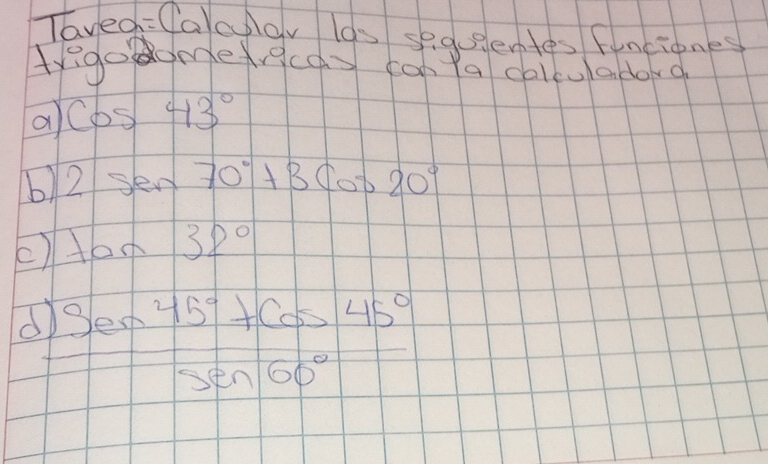 Tarea: Calcular las siguientes funciones
trigonometricas con la calculadora
a) Cos 43°
b) 2 sen 70° + 3 Cos 20°
c) tan 32°
d) Sen 45° + Cos 45°
sen 60°